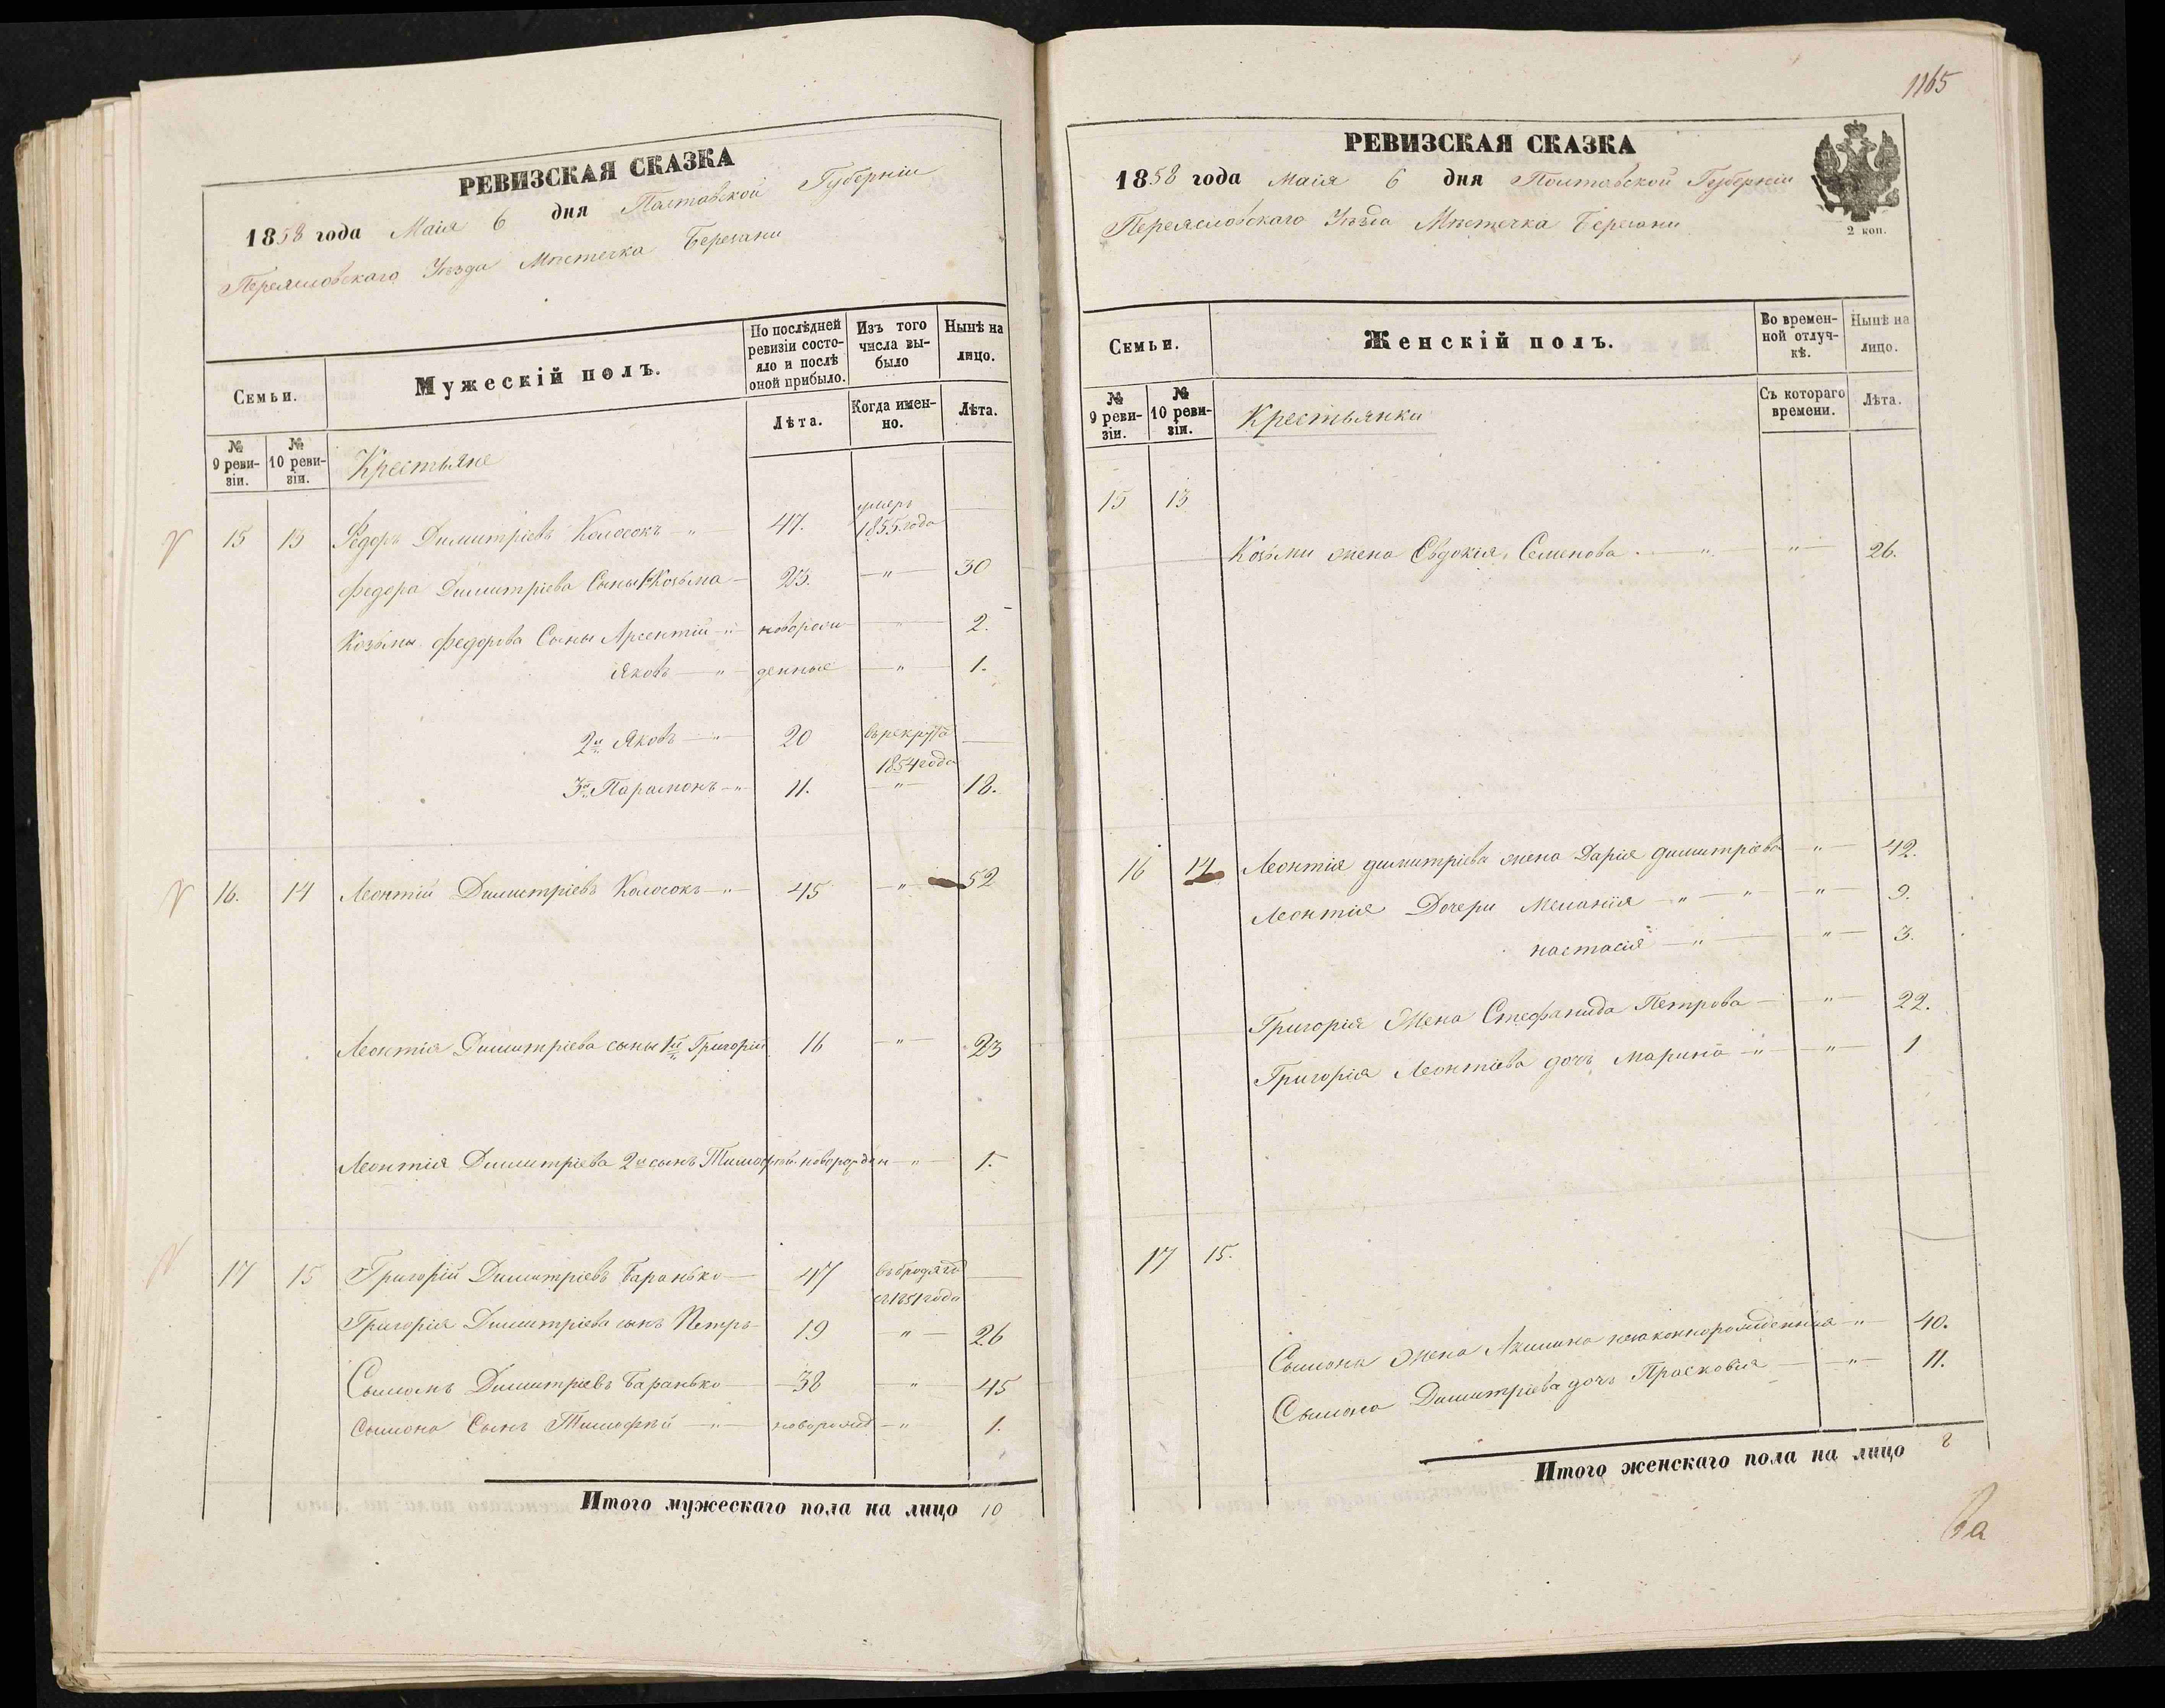 РЕВИЗСКАЯ СКАЗКА
1858 года Маія 6 дня Полтавской Губерніи
Переяславскаго Уѣзда Мѣстечка Березани
Семьи.
Мужескій полъ.
По послѣдней ревизіи состояло и послѣ оной прибыло.
Изъ того числа выбыло
Нынѣ на лицо.
№ 9 ревизіи.
№ 10 ревизіи.
Крестьяне
Лѣта.
Когда именно.
Лѣта.
15 13 Федоръ Димитріевъ Колосокъ — " 47. умеръ 1855 года —
Федора Димитріева Сыны 1й Козьма — 23. — " — 30
Козьмы Федорова Сыны Арсентій — " — новорож — " — 2.
Яковъ — " — денные — " — 1.
2й Яковъ — " — 20 въ рекрута 1854 года —
3й Парамонъ — " — 11. — " — 18.
16. 14 Леонтій Димитріевъ Колосокъ — " — 45 — " — 52
Леонтія Димитріева сыны 1й Григорій 16 — " — 23
Леонтія Димитріева 2й сынъ Тимофей новорожден — " — 1.
17 15 Григорій Димитріевъ Баранько — 47 въ бродягахъ съ 1851 года —
Григорія Димитріева сынъ Петръ — 19 — " — 26
Сымонъ Димитріевъ Баранько — 38 — " — 45
Сымона Сынъ Тимофѣй — " — новорожд — " 1.
Итого мужескаго пола на лицо 10
1165
РЕВИЗСКАЯ СКАЗКА
1858 года Маія 6 дня Полтавской Губерніи
2 коп.
Переяславскаго Уѣзда Мѣстечка Березани
Семьи.
Женскій полъ.
Во временной отлучкѣ.
Нынѣ на лицо.
№ 9 ревизіи.
№ 10 ревизіи.
Крестьянки
Съ котораго времени.
Лѣта.
15 13
Козьмы жена Евдокія Семенова — " — " — 26.
16 14 Леонтія димитріева жена Дарія димитріева — " — 42.
Леонтія Дочери Меланія — " — " — " — 9.
настасія — " — " — 3.
Григорія Жена Стефанида Петрова — " — 22.
Григорія Леонтіева дочь Марина — " — " — 1
17 15.
Сымона Жена Акилина незаконнорожденная — " — 40.
Сымона Димитріева дочь Прасковія — " — 11.
Итого женскаго пола на лицо 8